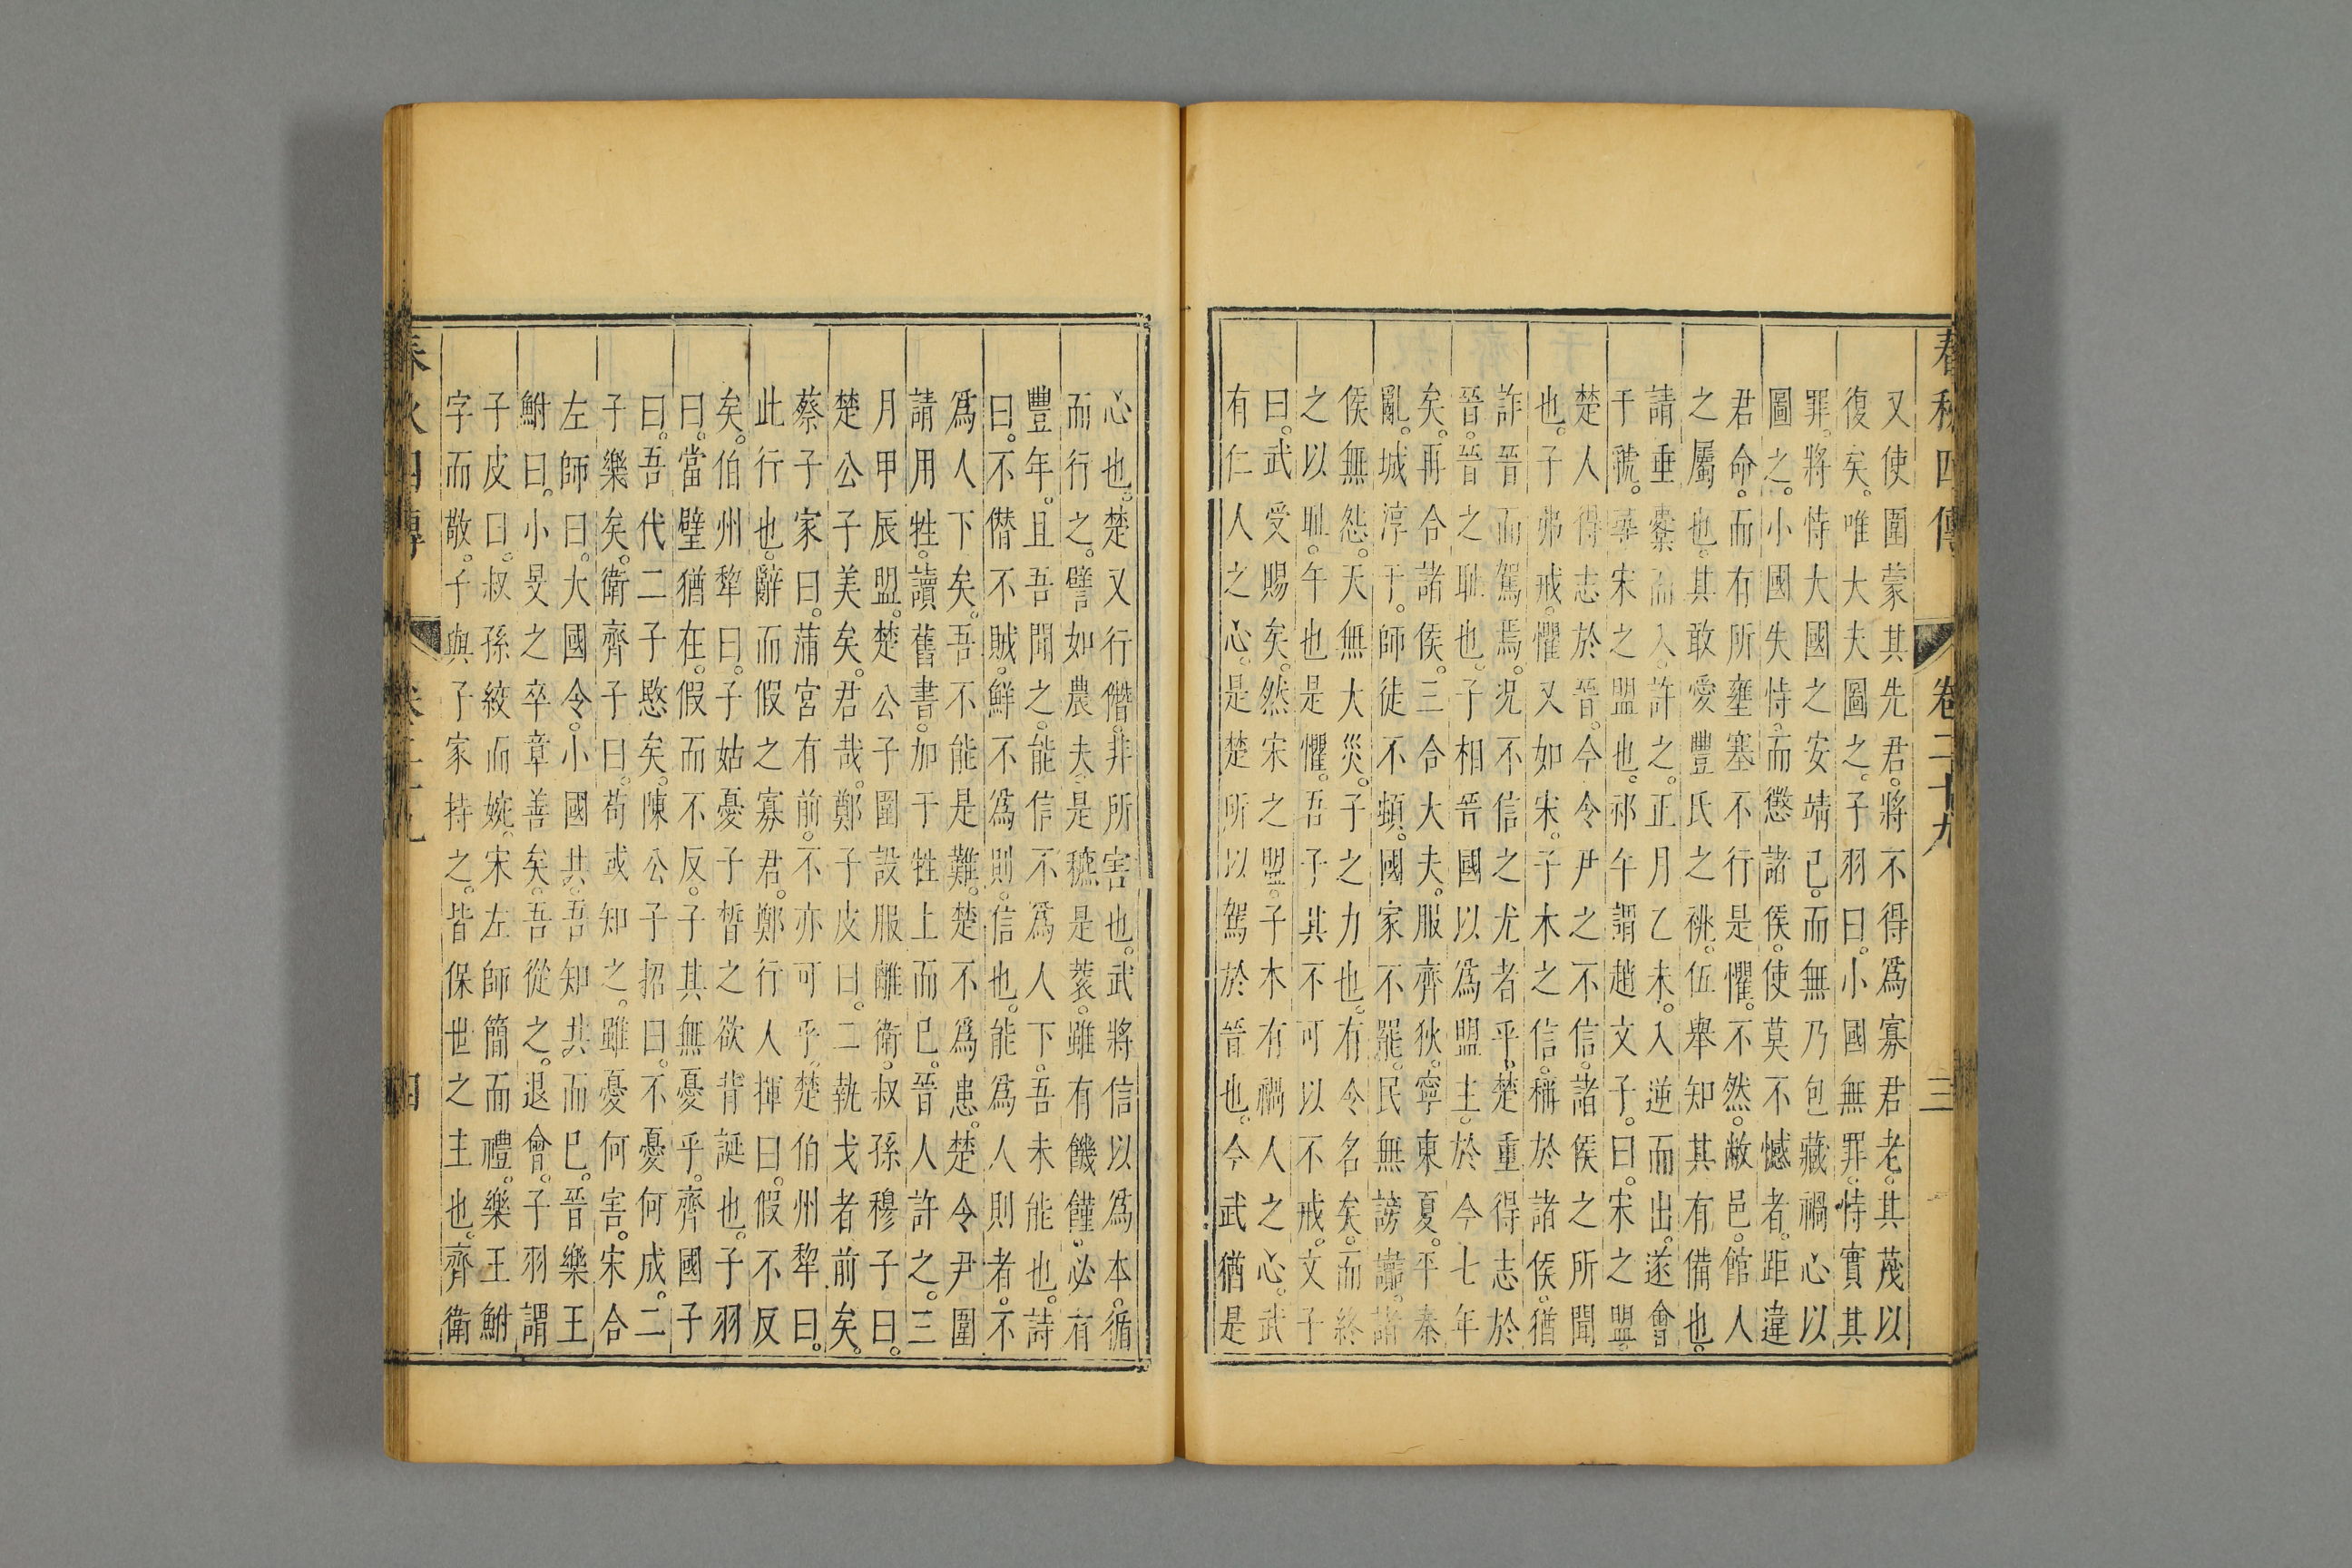 春秋四傳 卷二十九 三
又使圍蒙其先君。將不得爲寡君老。其蔑以
復矣。唯大夫圖之。子羽曰。小國無罪。恃實其
罪。將恃大國之安靖已。而無乃包藏禍心以
圖之。小國失恃。而懲諸侯。使莫不憾者。距違
君命。而有所壅塞不行是懼。不然。敝邑。館人
之屬也。其敢愛豐氏之祧。伍舉知其有備也。
請垂櫜而入。許之。正月乙未。入逆而出。遂會
于虢。尋宋之盟也。祁午謂趙文子。曰。宋之盟。
楚人得志於晉。今令尹之不信。諸侯之所聞
也。子弗戒。懼又如宋。子木之信。稱於諸侯。猶
詐晉而駕焉。況不信之尤者乎。楚重得志於
晉。晉之恥也。子相晉國以爲盟主。於今七年
矣。再合諸侯。三合大夫。服齊狄。寧東夏。平秦
亂。城淳于。師徒不頓。國家不罷。民無謗讟。諸
侯無怨。天無大災。子之力也。有令名矣。而終
之以恥。午也是懼。吾子其不可以不戒。文子
曰。武受賜矣。然宋之盟。子木有禍人之心。武
有仁人之心。是楚所以駕於晉也。今武猶是
心也。楚又行僭。非所害也。武將信以爲本。循
而行之。譬如農夫。是穮是蓘。雖有饑饉。必有
豐年。且吾聞之。能信不爲人下。吾未能也。詩
曰。不僭不賊。鮮不爲則。信也。能爲人則者。不
爲人下矣。吾不能是難。楚不爲患。楚令尹圍
請用牲。讀舊書。加于牲上而已。晉人許之。三
月甲辰盟。楚公子圍設服離衛。叔孫穆子曰。
楚公子美矣。君哉。鄭子皮曰。二執戈者前矣。
蔡子家曰。蒲宮有前。不亦可乎。楚伯州犂曰。
此行也。辭而假之寡君。鄭行人揮曰。假不反
矣。伯州犂曰。子姑憂子晳之欲背誕也。子羽
曰。當璧猶在。假而不反。子其無憂乎。齊國子
曰。吾代二子愍矣。陳公子招曰。不憂何成。二
子樂矣。衛齊子曰。苟或知之。雖憂何害。宋合
左師曰。大國令。小國共。吾知共而已。晉樂王
鮒曰。小旻之卒章善矣。吾從之。退會。子羽謂
子皮曰。叔孫絞而婉。宋左師簡而禮。樂王鮒
字而敬。子與子家持之。皆保世之主也。齊衛
春秋四傳 卷二十九 四